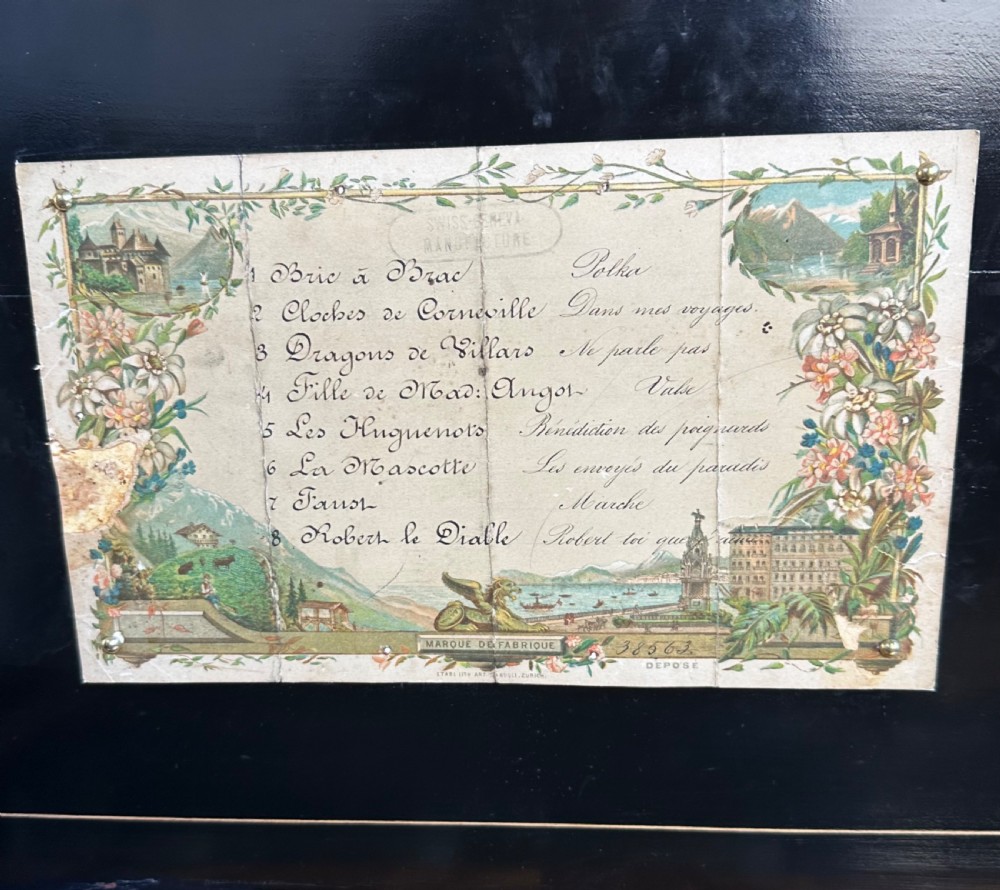 SWISS GENEVA
MANUFACTURE
1 Bric à Brac Polka
2 Cloches de Corneville Dans mes voyages.
3 Dragons de Villars Ne parle pas
4 Fille de Mad: Angot Valse
5 Les Huguenots Bénédiction des poignards
6 La Mascotte Les envoyés du paradis
7 Faust Marche
8 Robert le Diable Robert toi que
MARQUE DE FABRIQUE
38563
DÉPOSÉ